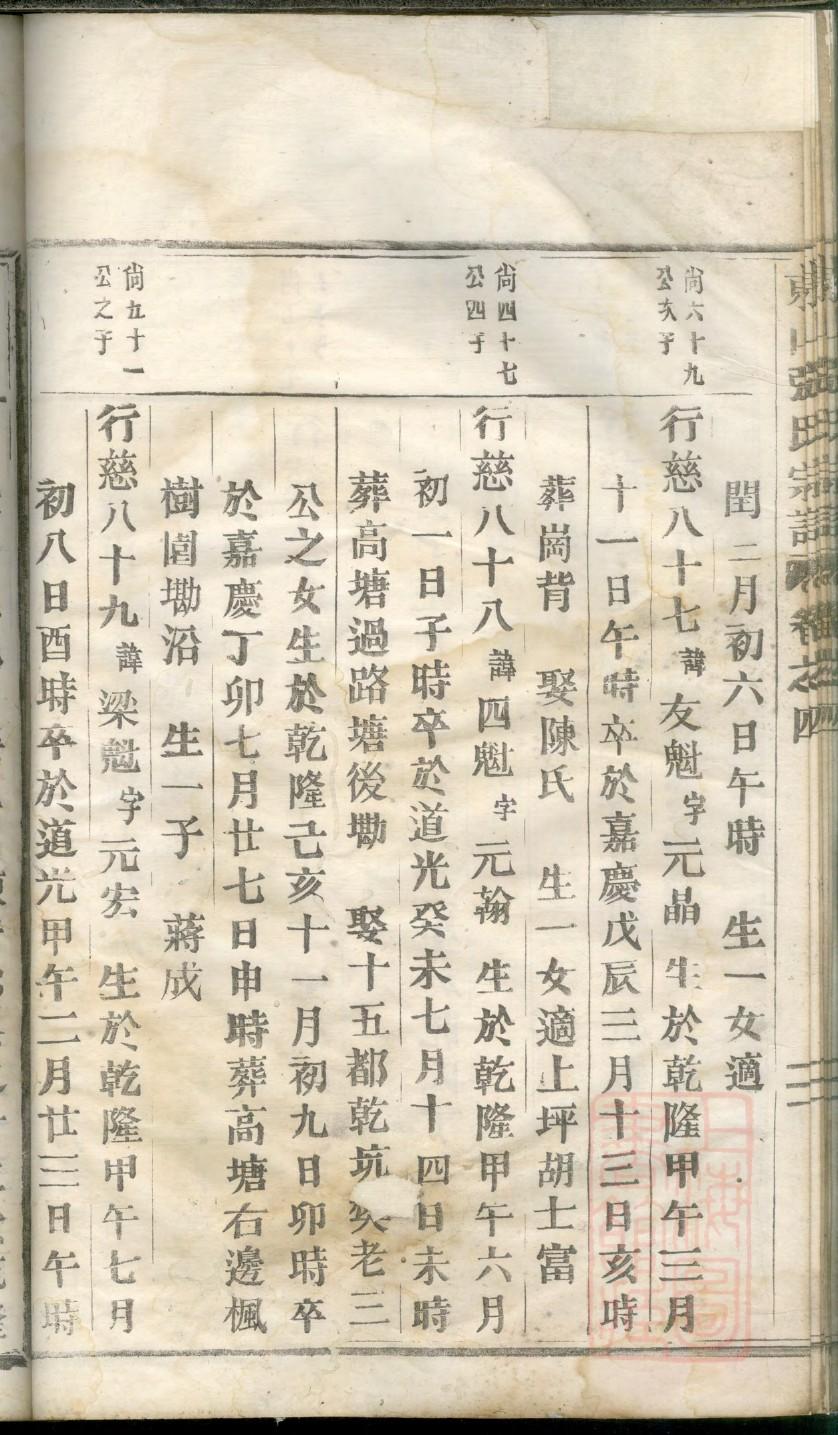 閏二月初六日午時 生一女適
尙六十九
公次子
行慈八十七諱友魁字元晶 生於乾隆甲午三月
十一日午時卒於嘉慶戊辰三月十三日亥時
葬崗背 娶陳氏 生一女適上坪胡士富
尙四十七
公四子
行慈八十八諱四魁字元翰 生於乾隆甲午六月
初一日子時卒於道光癸未七月十四日未時
葬高塘過路塘後墈 娶十五都乾坑 老三
公之女生於乾隆己亥十一月初九日卯時卒
於嘉慶丁卯七月廿七日申時葬高塘右邊楓
樹園墈沿 生一子 蔣成
尙五十一
公之子
行慈八十九諱梁魁字元宏 生於乾隆甲午七月
初八日酉時卒於道光甲午二月廿三日午時